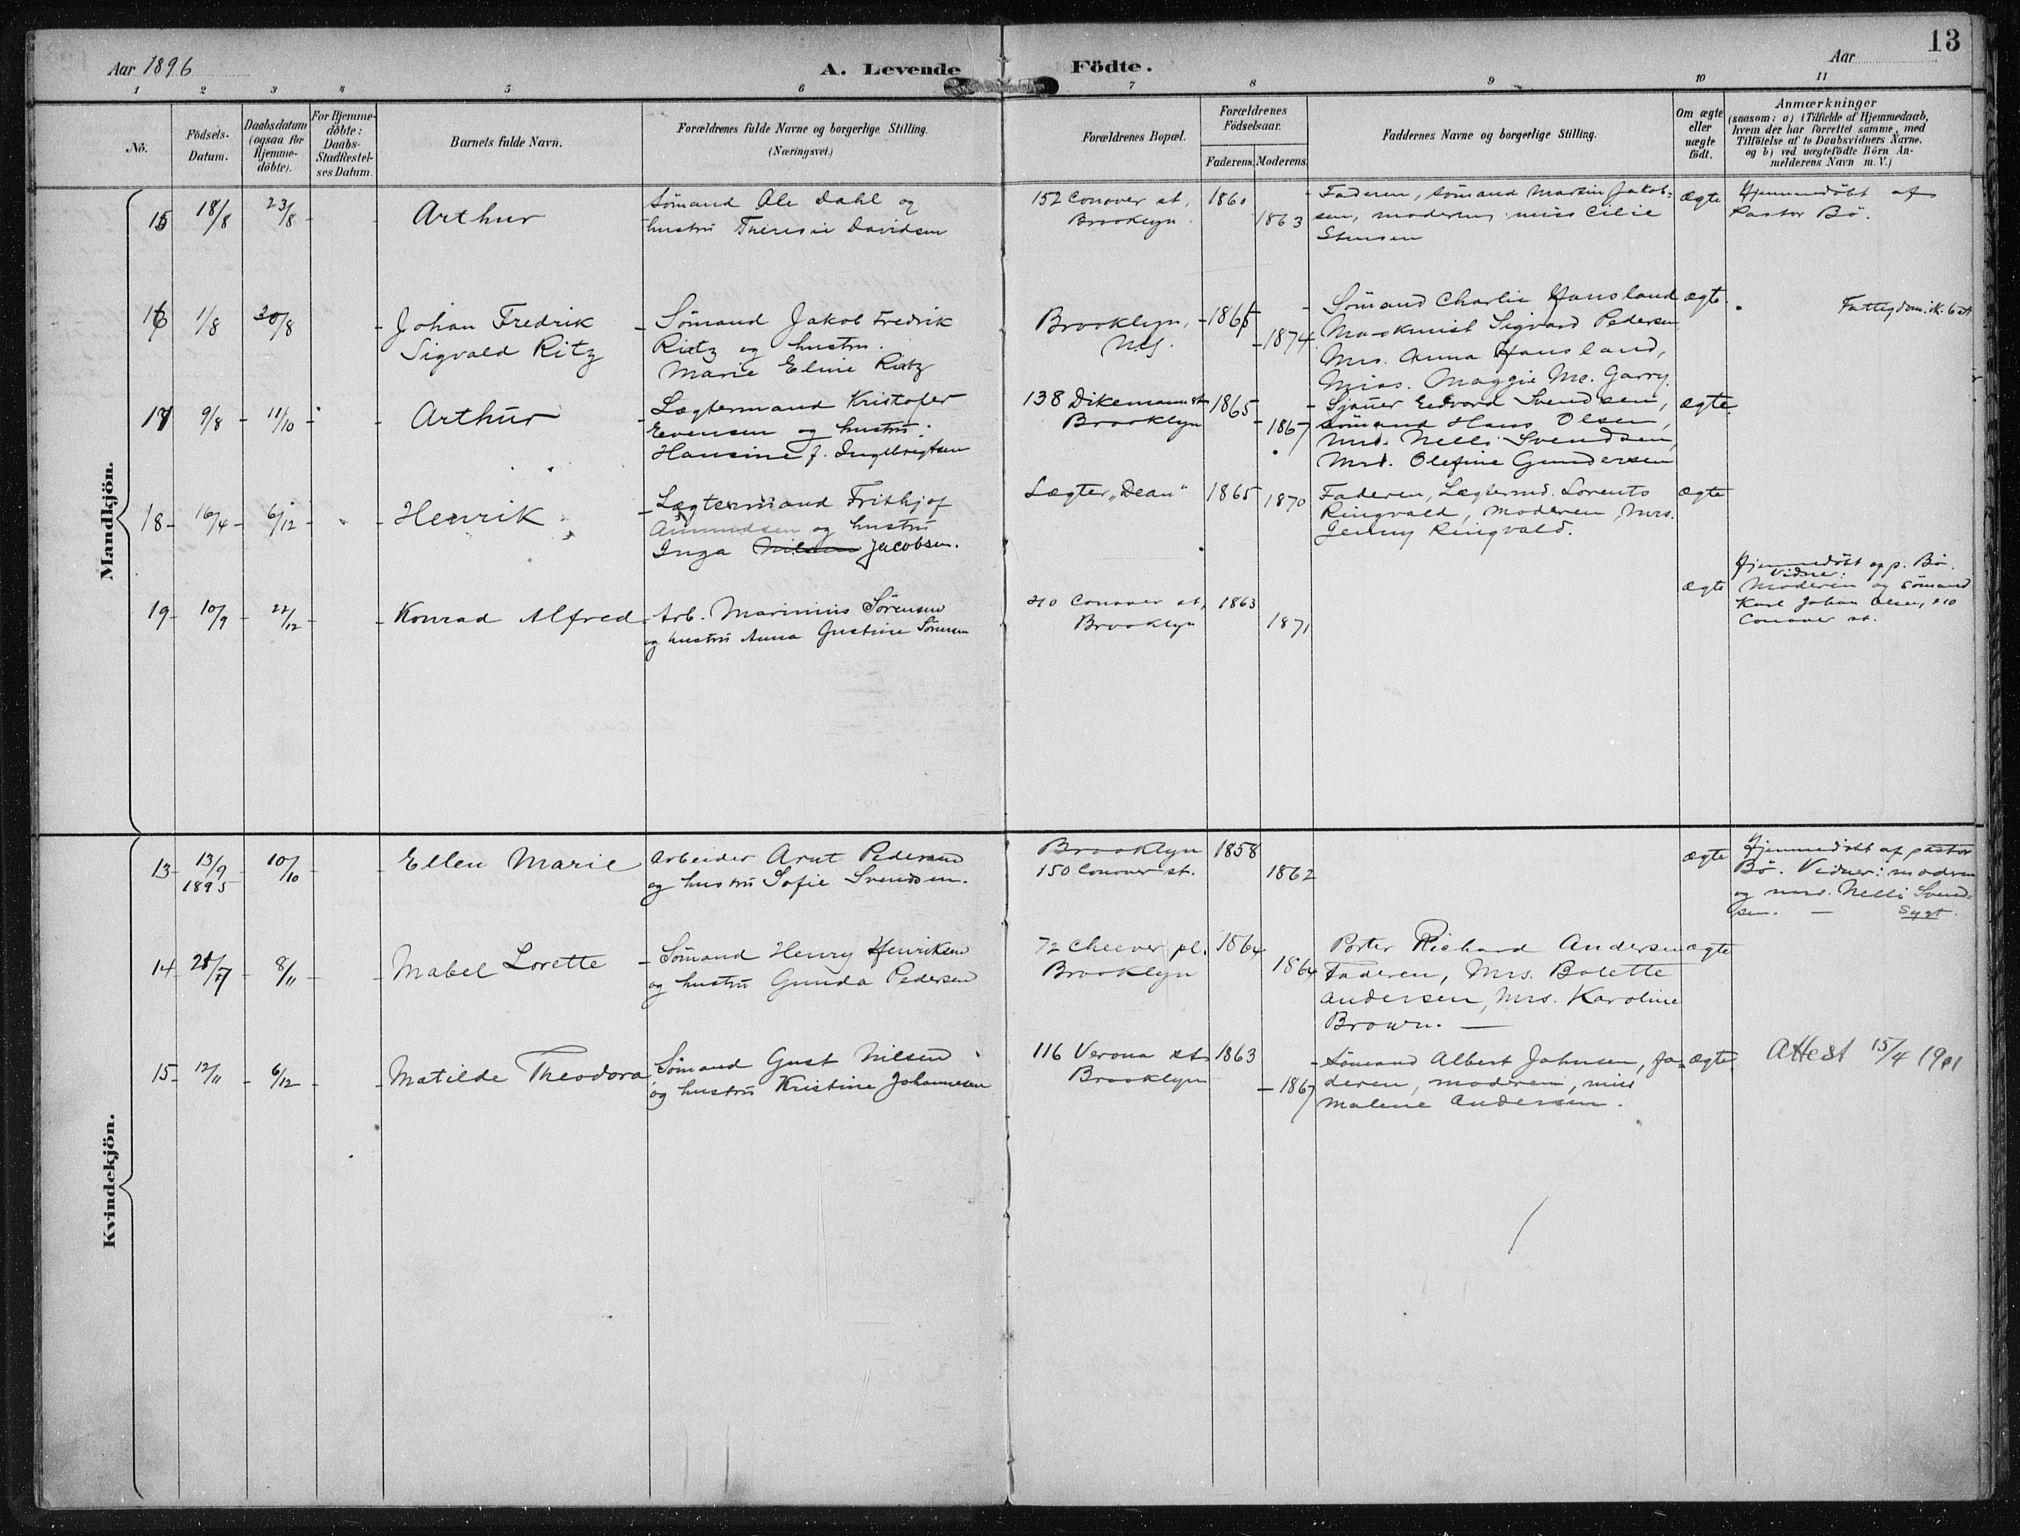 13
Aar 1896
A. Levende Födte.
Aar
1 2 3 4 5 6 7 8 9 10 11
No.
Födsels-
Datum.
Daabsdatum
(ogsaa for
Hjemme-
döbte).
For Hjemme-
döbte:
Daabs-
Stadfæstel-
ses Datum.
Barnets fulde Navn.
Forældrenes fulde Navne og borgerlige Stilling.
(Næringsvei.)
Forældrenes Bopæl.
Forældrenes
Födselsaar.
Faderens. Moderens.
Faddernes Navne og borgerlige Stilling.
Om ægte
eller
uægte
födt.
Anmærkninger
(saasom: a) i Tilfælde af Hjemmedaab,
hvem der har forrettet samme, med
Tilföielse af to Daabsvidners Navne,
og b) ved uægtefödte Börn An-
melderens Navn m. V.)
Mandkjön.
15 18/8 23/8 Arthur
Sømand Ole Dahl og
hustru Theresie Davidsen
152 Conover st,
Brooklyn.
1860 1863
Faderen, sømand Martin Jakob-
sen, moderen, miss Cilie
Stensen
ægte
Hjemmedöbt af
Pastor Bø.
16 1/8 30/8
Johan Fredrik
Sigvald Ritz
Sømand Jakob Fredrik
Ritz og hustru
Marie Eline Ritz
Brooklyn,
N.Y.
1865 1874
Sømand Charlie Hansland
Maskinist Sigvard Pedersen
Mrs. Anna Hansland,
Miss. Maggie Mc. Garry.
ægte
17 9/8 11/10 Arthur
Lægtermand Kristofer
Evensen og hustru
Hansine f. Ingebrigtsen
138 Dikemann st
Brooklyn
1865 1867
Sjauer Edvard Svendsen,
sømand Hans Olsen,
Mrs. Nelli Svendsen,
Mrs. Olefine Gundersen
ægte
18 16/4 6/12 Henrik
Lægtermand Frithjof
Amundsen og hustru
Inga Nilsen Jacobsen.
Lægter "Dean"
1865 1870
Faderen, Lægtermd. Lorents
Ringvald, moderen, Mrs.
Jenny Ringvald.
ægte
19 10/9 22/12 Konrad Alfred
Arb. Marinius Sørensen
og hustru Anna Gustine Sørensen
210 Conover st,
Brooklyn
1863 1871
ægte
Hjemmedöbt af p. Bø.
Vidner:
Moderen og sømand
Karl Johan Olsen, 210
Conover st.
Kvindekjön.
13 13/9
1895
10/10
Ellen Marie
Arbeider Arnt Pedersen
og hustru Sofie Svendsen.
Brooklyn
150 Conover st.
1858 1862
ægte
Hjemmedöbt af pastor
Bø. Vidner: modren
og mrs. Nelli Svend-
sen. — Sygt.
14 8/11 Mabel Lorette
Sømand Henry Henriksen
og hustru Gunda Pedersen
72 Cheever pl.
Brooklyn
1864 1864
Porter Richard Andersen
Faderen, Mrs. Bolette
Andersen, Mrs. Karoline
Brown. —
ægte
15 12/11 6/12 Matilde Theodora
Sømand Gust Nilsen
og hustru Kristine Johannesen
116 Verona st
Brooklyn
1863 1867
Sømand Albert Johnsen, fa-
deren, moderen, miss
Malene Andersen.
ægte
Attest 15/4 1901